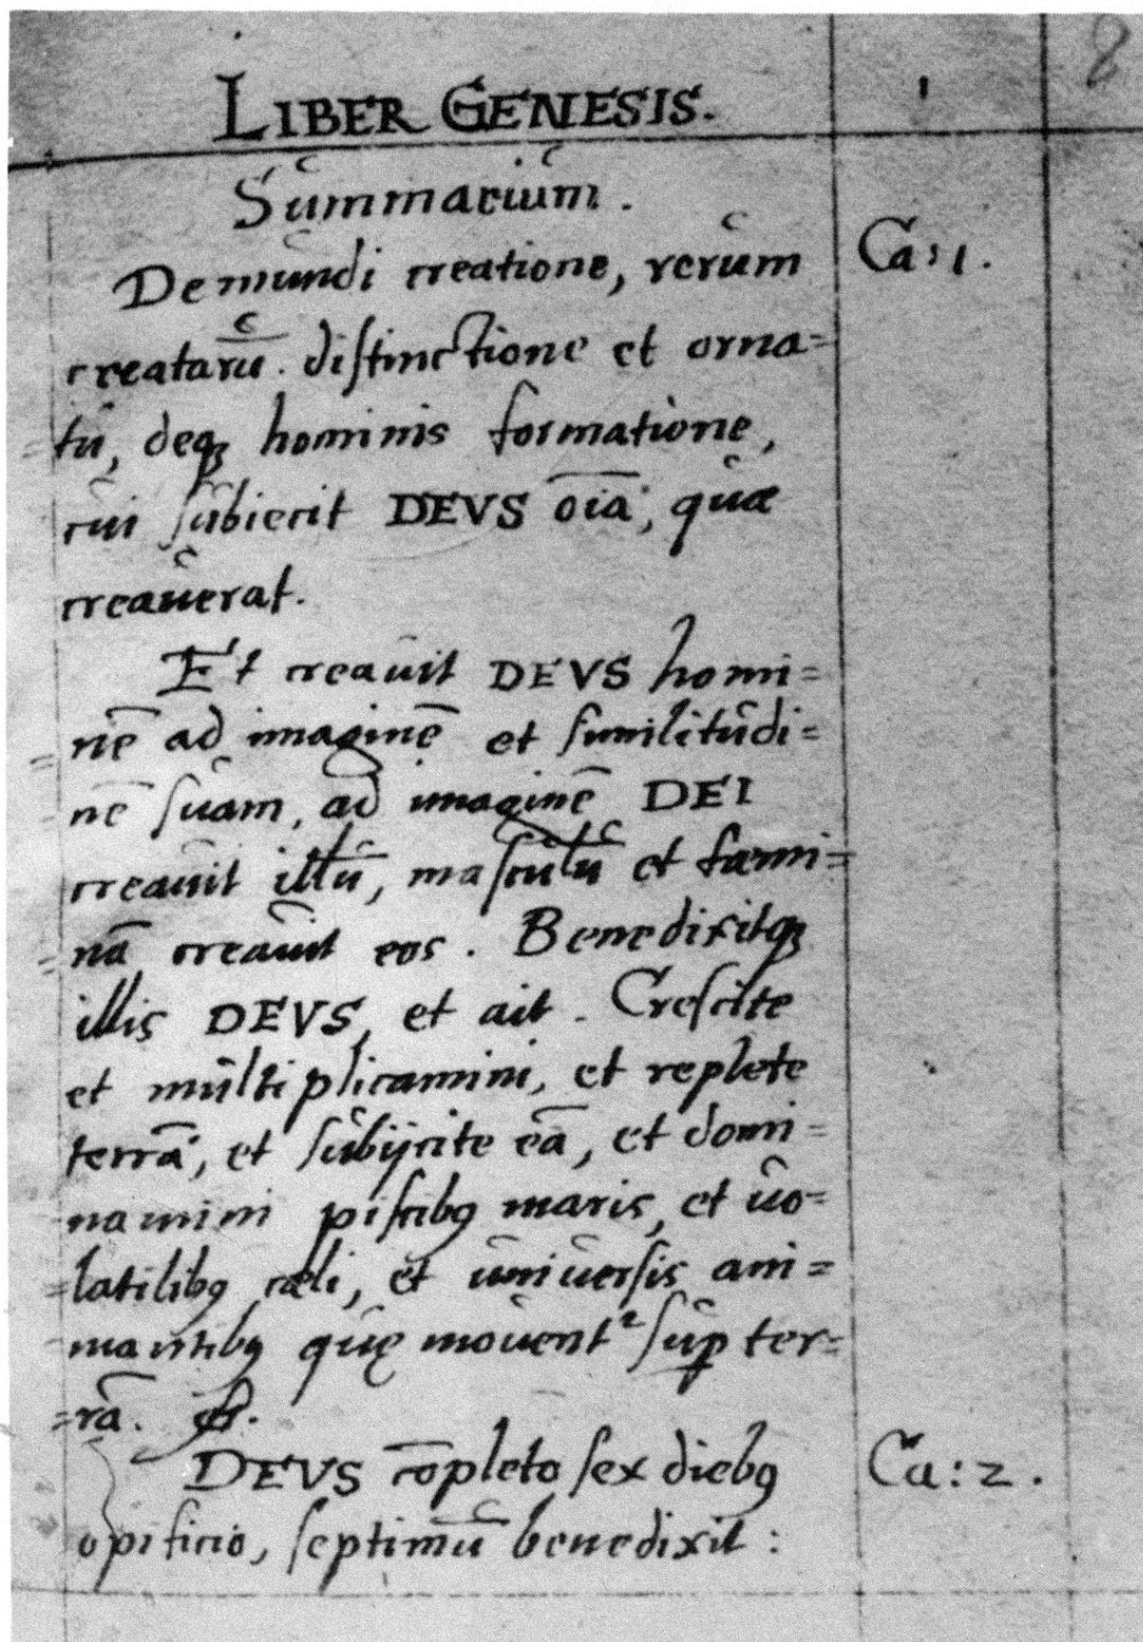 LIBER GENESIS. 1 8
Summarium.
De mundi creatione, rerum Ca: 1.
creatarū. distinctione et orna=
tu, deqꝫ hominis formatione,
cui subiecit DEVS oīa, quæ
creauerat.
Et creauit DEVS homi=
=nē ad imaginē et similitudi=
nē suam, ad imaginē DEI
creauit illū, masculū et fœmi=
=nā creauit eos. Benedixitqꝫ
illis DEVS, et ait. Crescite
et multiplicamini, et replete
terrā, et subijcite eā, et domi=
namini piscibꝯ maris, et uo=
=latilibꝯ cæli, et uniuersis ani=
mantibꝯ quę mouent² suꝑ ter=
=rā. &.
DEVS cōpleto sex diebꝯ Ca: 2.
opificio, septimū benedixit: